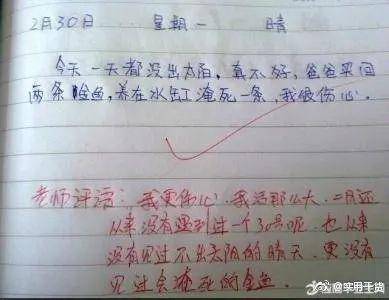 2月30日 星期一 晴
今天一天都没出太阳，真不好，爸爸买回
两条金鱼，养在水缸淹死一条，我很伤心。
老师评语：我更伤心，我活那么大，二月还
从来没有遇到过一个30号呢，也从来
没有见过不出太阳的晴天，更没有
见过会淹死的金鱼
@实用干货